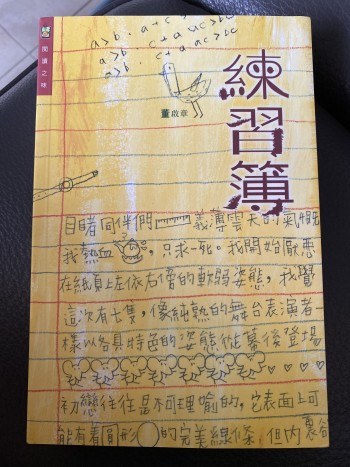 a>b.
a>b.
a>b.
閱讀之旅
練習簿
董啟章
目睹同伴們義薄雲天的氣慨
我熱血，只求一死。我開始厭惡
在紙頁上左依右傍的軟弱姿態，我覺
這次有七隻，像純熟的舞台表演者一
樣以各具特色的姿態從幕後登場
初戀往往是不可理喻的，它表面上可
能有着圓形的完美線條，但內裏